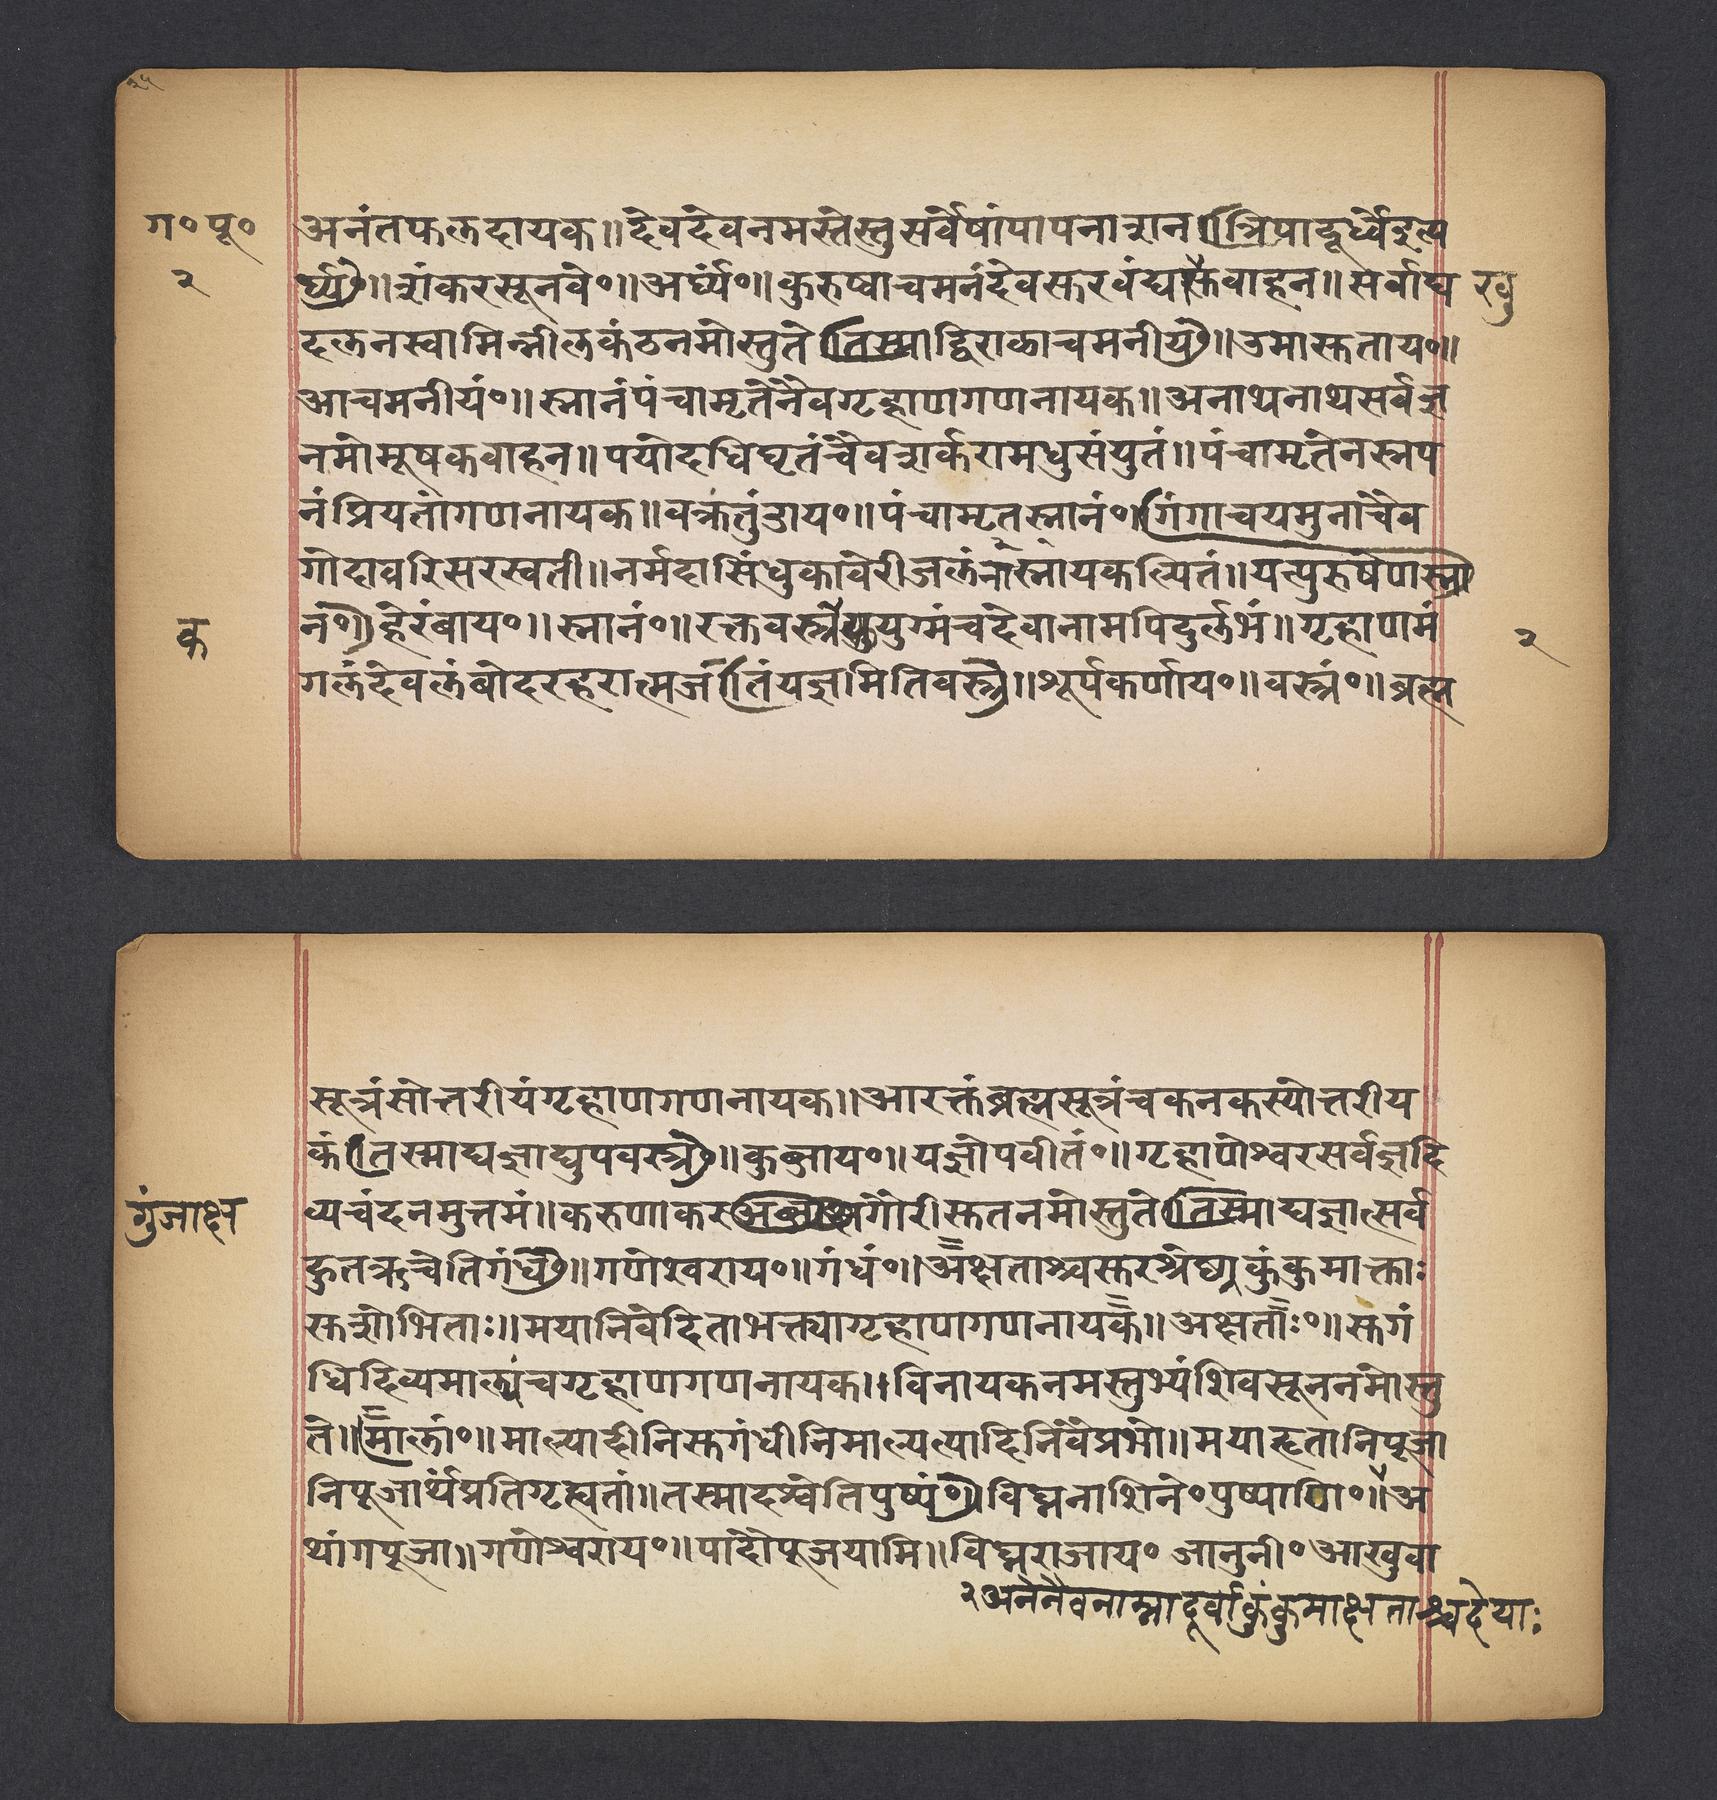 ग॰ पू॰
२
अनंतफलदायक॥देवदेवनमस्तेस्तुसर्वेषांपापनाशन(त्रिपादूर्ध्वेइत्य
र्घ्यं)॥शंकरसूनवे॰॥अर्घ्यं॰॥कुरुष्वाचमनंदेवसुरवंद्यसुवाहन॥सर्वाघ
खु
दलनस्वामिन्नीलकंठनमोस्तुते(तस्माद्विराळाचमनीयं)॥उमासुताय॰॥
आचमनीयं॰॥स्नानंपंचामृतेनैवगृहाणगणनायक॥अनाथनाथसर्वज्ञ
नमोमूषकवाहन॥पयोदधिघृतंचैवशर्करामधुसंयुतं॥पंचामृतेनस्नप
नंप्रियतांगणनायक॥वक्रतुंडाय॰॥पंचामृतस्नानं॰॥(गंगाचयमुनांचैव
गोदावरिसरस्वती॥नर्मदासिंधुकावेरीजलंस्नानायकल्पितं॥यत्पुरुषेणस्ना
नं॰)हेरंबाय॰॥स्नानं॰॥रक्तवस्त्रयुग्मंचदेवानामपिदुर्लभं॥गृहाणमं
क
२
गलंदेवलंबोदरहरात्मज(तंयज्ञमितिवस्त्रं)॥शूर्पकर्णाय॰॥वस्त्रं॰॥ब्रह्म
सूत्रंसोत्तरीयंगृहाणगणनायक॥आरक्तंब्रह्मसूत्रंचकनकस्योत्तरीय
कं(तस्माद्यज्ञाद्युपवस्त्रं)॥कुब्जाय॰॥यज्ञोपवीतं॰॥गृहाणेश्वरसर्वज्ञदि
व्यचंदनमुत्तमं॥करुणाकरगौरीसुतनमोस्तुते(तस्माद्यज्ञात्सर्व
गुंजाक्ष
हुतऋचेतिगंधं)॥गणेश्वराय॰॥गंधं॰॥अक्षताश्चसुरश्रेष्ठकुंकुमाक्ताः
सुशोभिताः॥मयानिवेदिताभक्त्यागृहाणगणनायक॥अक्षताः॰॥सुगं
धिदिव्यमाल्यंचगृहाणगणनायक॥विनायकनमस्तुभ्यंशिवसूननमोस्तु
ते॥मालां॰॥माल्यादीनिसुगंधीनिमाल्यत्यादिनिवैप्रभो॥मयाहृतानिपूजा
निपूजार्थंप्रतिगृह्यतां॥तस्मादश्वेतिपुष्पं॰)विघ्ननाशिने॰पुष्पाणि॰॥अ
थांगपूजा॥गणेश्वराय॰॥पादौपूजयामि॥विघ्नराजाय॰ जानुनी॰ आखुवा
२अनेनैवनाम्नादूर्वाकुंकुमाक्षताश्चदेयाः